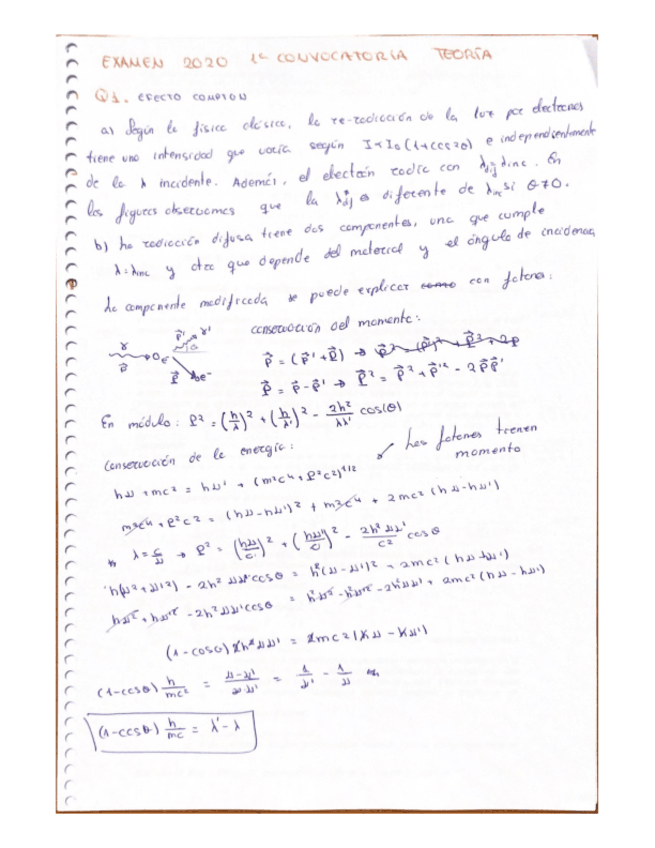 EXAMEN 2020 1ª CONVOCATORIA TEORÍA
Q1. EFECTO COMPTON
a) Según la física clásica, la re-radiación de la luz por electrones
tiene una intensidad que varía según I∝I₀(1+cos²θ) e independientemente
de la λ incidente. Además, el electrón radia con λdif = λinc. En
las figuras observamos que la λdif es diferente de λinc si θ≠0.
b) La radiación difusa tiene dos componentes, una que cumple
λ=λinc y otra que depende del material y el ángulo de incidencia
La componente modificada se puede explicar como con fotones:
conservación del momento:
p⃗ = (p⃗' + P⃗) →
P⃗ = p⃗ - p⃗' → P² = p⃗² + p⃗'² - 2p⃗p⃗'
γ γ' p⃗ p⃗' θ e⁻ P⃗ e⁻
En módulo: P² = (h/λ)² + (h/λ')² - 2h²/λλ' cos(θ)
Conservación de la energía:
Los fotones tienen
momento
hν + mc² = hν' + (m²c⁴ + P²c²)^1/2
m²c⁴ + P²c² = (hν - hν')² + m²c⁴ + 2mc² (hν - hν')
λ = c/ν → P² = (hν/c)² + (hν'/c)² - 2h²νν'/c² cosθ
h²(ν² + ν'²) - 2h²νν'cosθ = h²(ν - ν')² + 2mc² (hν - hν')
h²ν² + h²ν'² - 2h²νν'cosθ = h²ν² + h²ν'² - 2h²νν' + 2mc² (hν - hν')
(1 - cosθ) 2h²νν' = 2mc² (hν - hν')
(1 - cosθ) h/mc² = ν - ν'/νν' = 1/ν' - 1/ν
(1 - cosθ) h/mc = λ' - λ